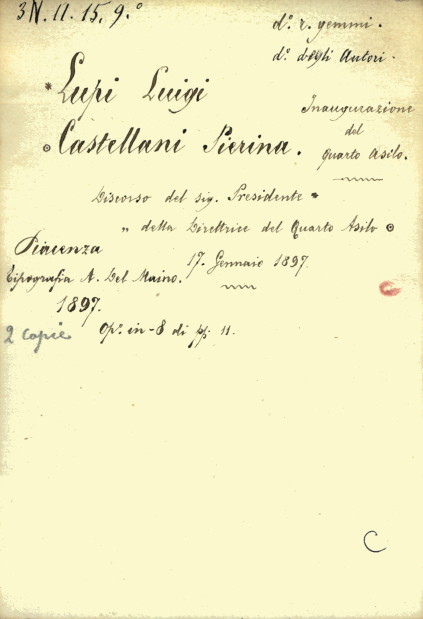 3N. 11. 15, 9.º
dº. r. gemmi.
dº. degli Autori.
* Lupi Luigi
⊙ Castellani Pierina.
Inaugurazione
del
Quarto Asilo.
Discorso del sig. Presidente *
" della Direttrice del Quarto Asilo ⊙
17. Gennaio 1897.
Piacenza
Tipografia A. Del Maino.
1897.
Opº. in-8 di pp. 11.
2 copie
C